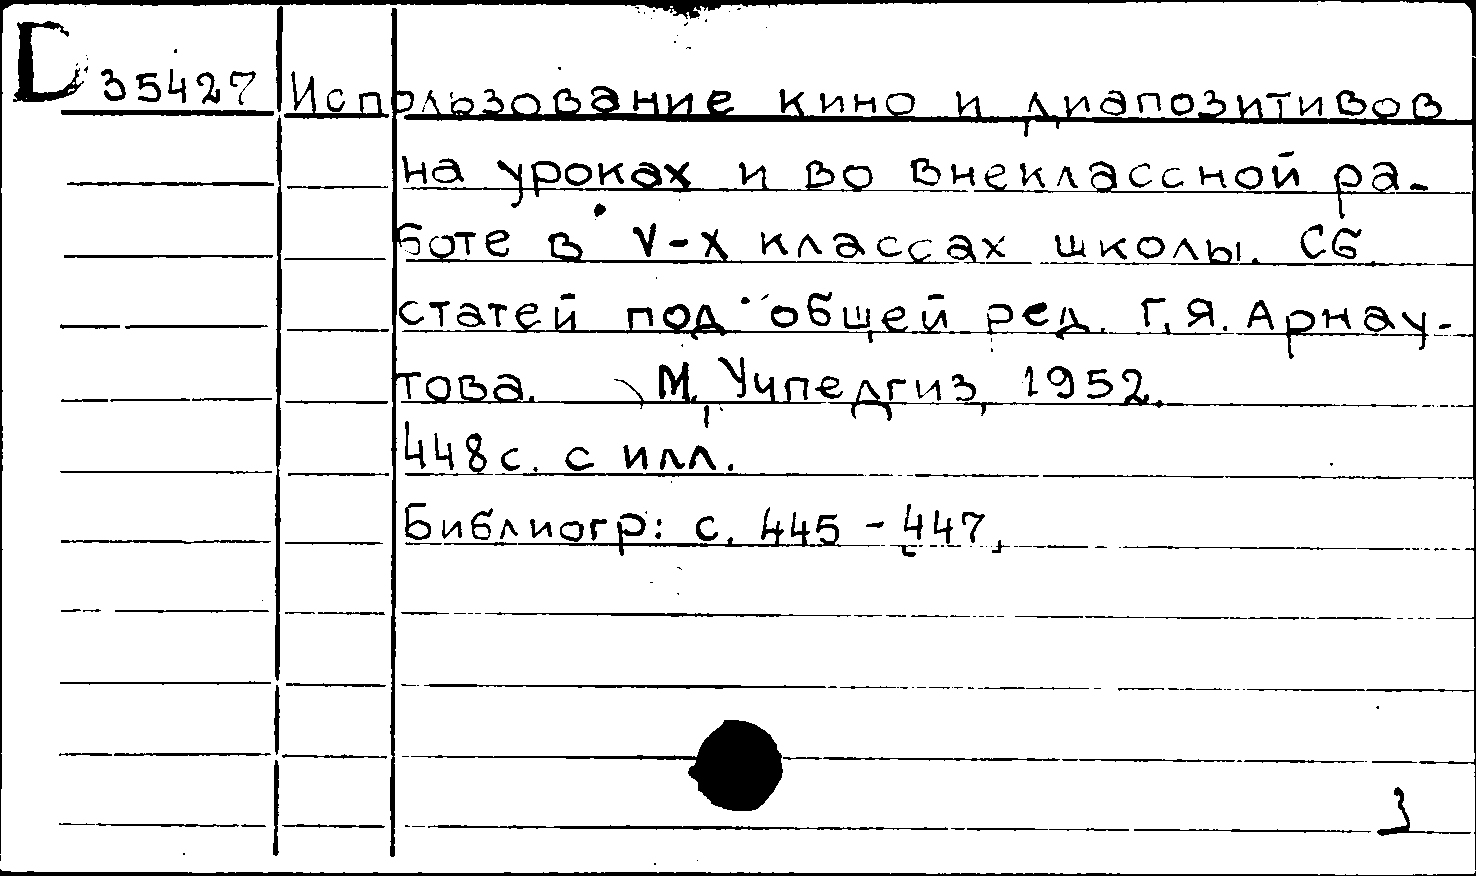 D 35427 Использование кино и диапозитивов
на уроках и во внеклассной ра-
боте в V-X классах школы. Сб.
статей под общей ред. Г.Я. Арнау-
това. М, Учпедгиз, 1952.
448с. с илл.
Библиогр: с. 445 - 447.